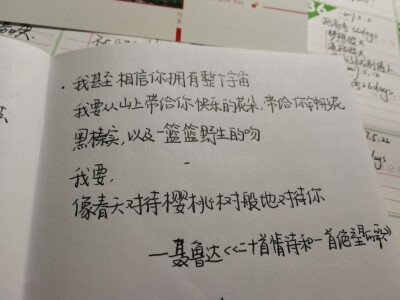 ·我甚至相信你拥有整个宇宙
我要从山上带给你快乐的花朵,带给你钟形花
黑榛实,以及一篮篮野生的吻
我要,
像春天对待樱桃树般地对待你
—聂鲁达《二十首情诗和一首绝望的歌》
36
days
days
5.22
days